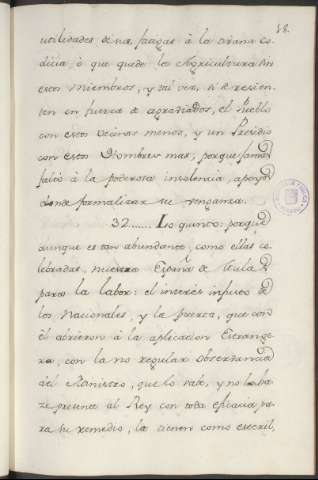 58.
utilidades de
à la
dicia, ò que quede la Agricultura sin
estos Miembros, y tal vez, si se resien-
ten en fuerza de agraviados, el Pueblo
con estos vecinos menos, y un Presidio
con estos Hombres mas, porque jamas
faltò à la poderosa insolencia, apoyo
donde formalizar su venganza.
32....... Lo quinto: porque
aunque es tan abundante, como ellas ce-
lebradas, nuestra España de
para la labor: el interès injusto de
los Nacionales, y la puerta, que con
èl abrieron à la aplicacion Estrange-
ra, con la no regular observancia
del Ministro, que lo sabe, y no lo ha-
ze presente al Rey con toda eficacia pa-
ra su remedio, la tienen como esteril,